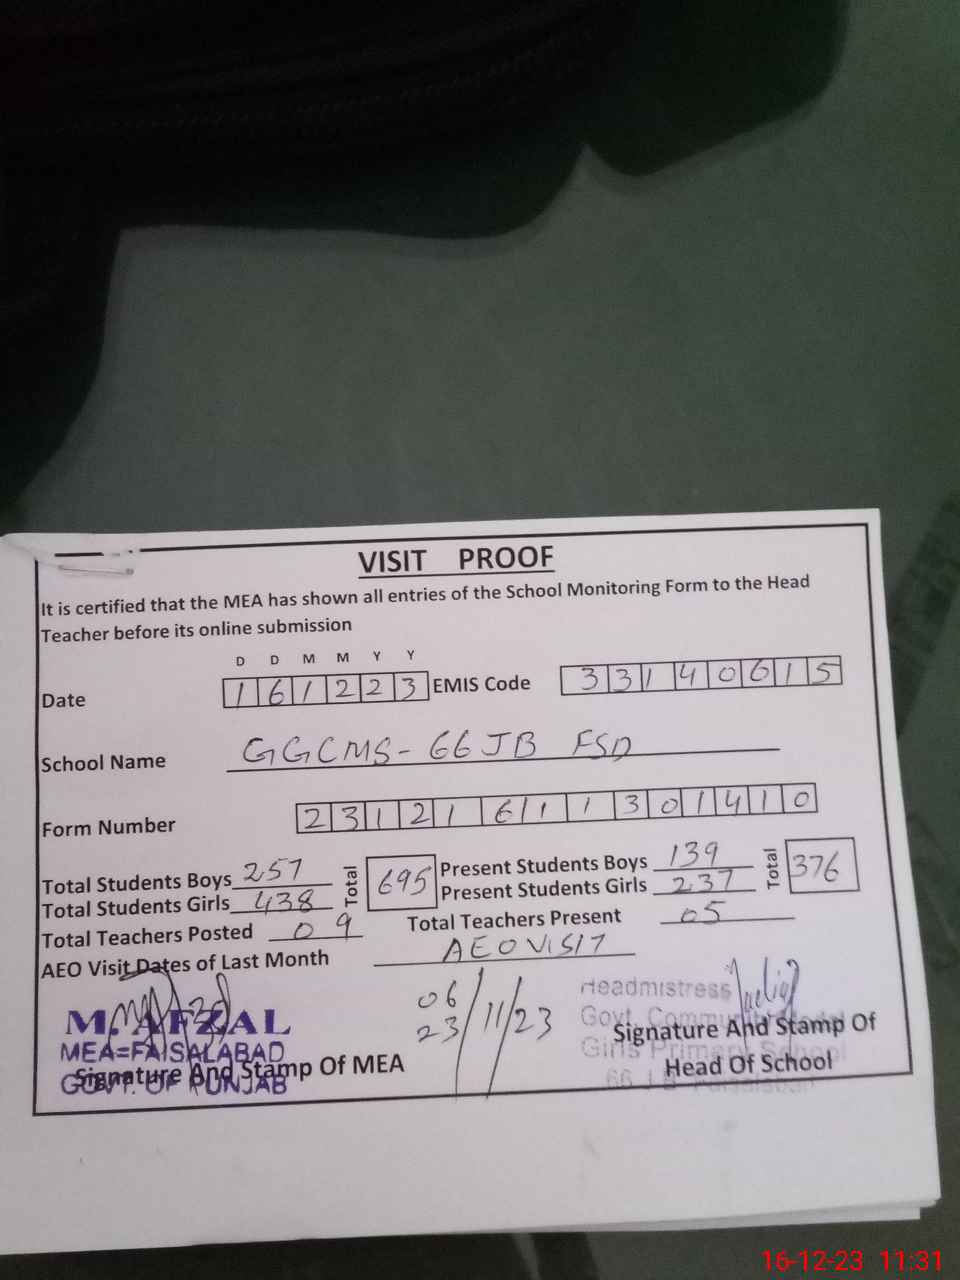 VISIT PROOF
It is certified that the MEA has shown all entries of the School Monitoring Form to the Head
Teacher before its online submission
D D M M Y Y
Date 161223 EMIS Code 33140615
School Name GGCMS-66JB FSD
Form Number 23121611301410
Total Students Boys 257 Total 695 Present Students Boys 139 Total 376
Total Students Girls 438 Present Students Girls 237
Total Teachers Posted 09 Total Teachers Present 05
AEO Visit Dates of Last Month AEO VISIT
06
23/11/23
M. AFZAL
MEA=FAISALABAD
GOVT. OF PUNJAB
Signature And Stamp Of MEA
Headmistress
Govt. Community Model
Girls Primary School
66 J B Faisalabad
Signature And Stamp Of
Head Of School
16-12-23 11:31